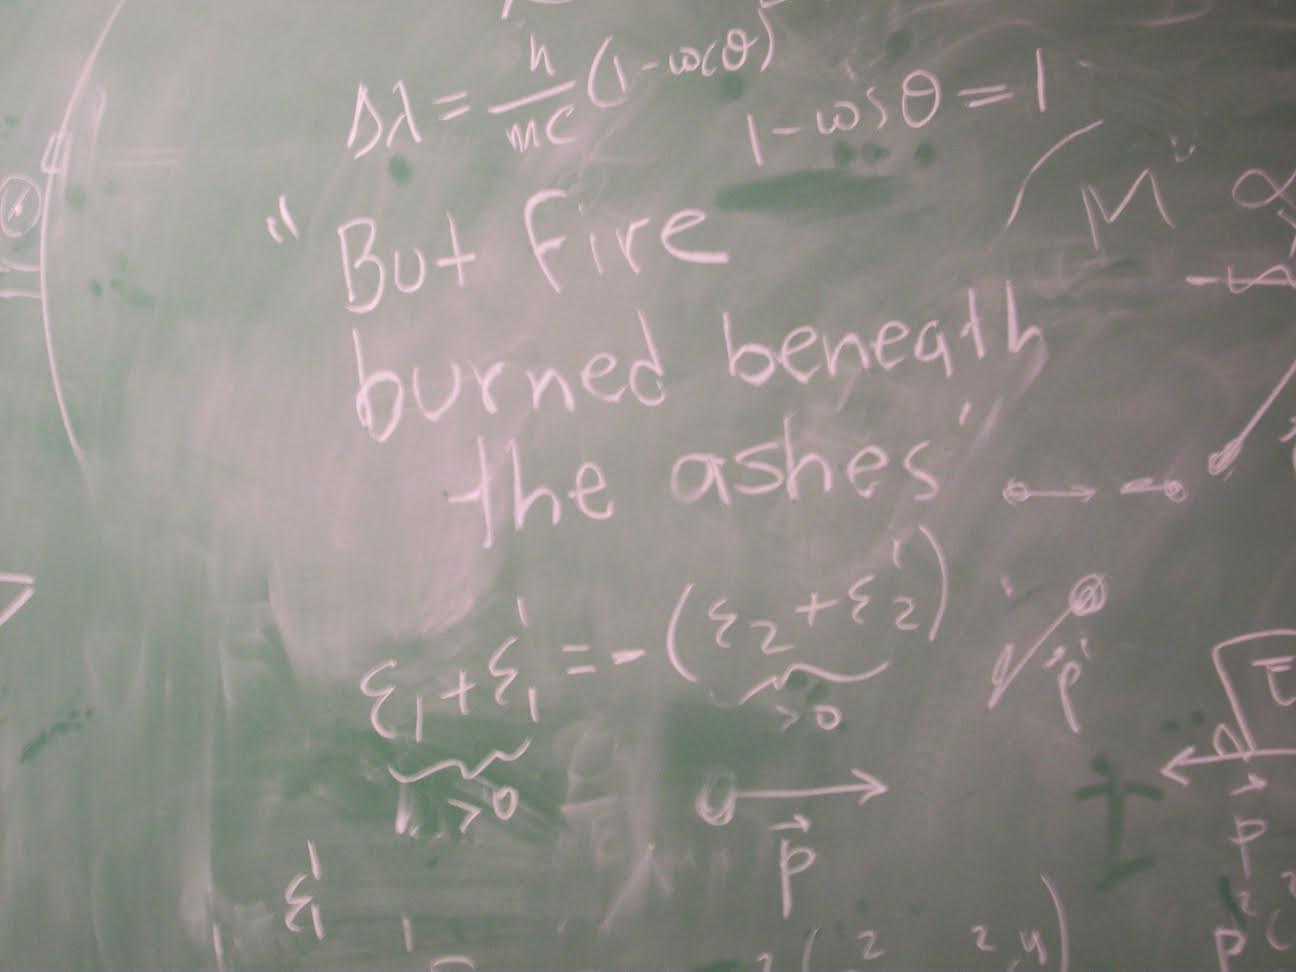 Δλ = h/mc (1-cosθ)
1-cosθ = 1
M α
" But Fire
burned beneath
the ashes"
ε₁+ε₁' = -(ε₂+ε₂')
>0
>0
p'
E
p⃗
p⃗
ε₁'